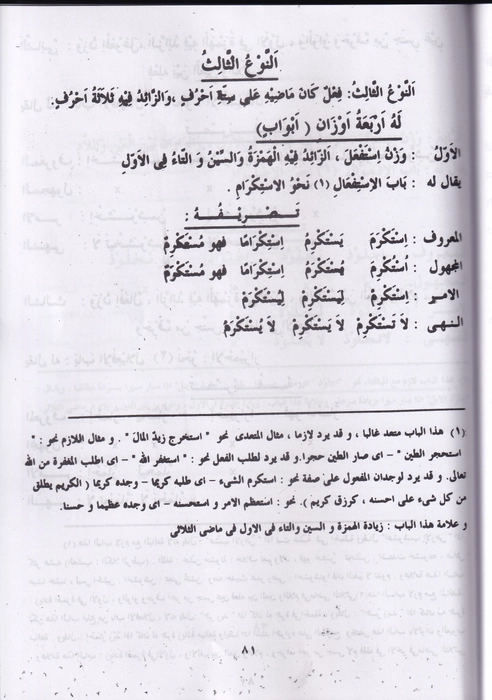 اَلنَّوْعُ الثَّالِثُ
اَلنَّوْعُ الثَّالِثُ: فِعْلٌ كَانَ مَاضِيْهِ عَلٰى سِتَّةِ اَحْرُفٍ ،وَالزَّائِدُ فِيْهِ ثَلَاثَةُ اَحْرُفٍ.
لَهُ اَرْبَعَةُ اَوْزَانٍ ( اَبْوَابٍ )
اَلاَوَّلُ : وَزْنُ اِسْتَفْعَلَ ، اَلزَّائِدُ فِيْهِ الْهَمْزَةُ وَالسِّيْنُ وَ التَّاءُ فِى الاَوَّلِ
يقال له : بَابَ الاِسْتِفْعَالِ (١) نَحْوُ الاِسْتِكْرَامِ
تَـصْـرِيْـفُـهُ :
المعروف : اِسْتَكْرَمَ يَسْتَكْرِمُ اِسْتِكْرَامًا فهو مُسْتَكْرِمٌ
المجهول : اُسْتُكْرِمَ يُسْتَكْرَمُ اِسْتِكْرَامًا فهو مُسْتَكْرَمٌ
الامـر : اِسْتَكْرِمْ لِيَسْتَكْرِمْ لِيُسْتَكْرَمْ
النـهـى : لاَ تَسْتَكْرِمْ لاَ يَسْتَكْرِمْ لاَ يُسْتَكْرَمْ
(١) هذا الباب متعد غالبا ، و قد يرد لازما ، مثال المتعدى نحو " استخرج زيدٌ المالَ " . و مثال اللازم نحو : "
استحجر الطين " – اى صار الطين حجرا.و قد يرد لطلب الفعل نحو : " استغفر الله " – اى اطلب المغفرة من الله
تعالى. و قد يرد لوجدان المفعول على صفة نحو : استكرم الشىء - اى طلبه كريما – وجده كريما ( الكريم يطلق
من كل شىء على احسنه ، كرزق كريم ). نحو : استعظم الامر و استحسنه - اى وجده عظيما و حسنا.
و علامة هذا الباب : زيادة الهمزة و السين والتاء فى الاول فى ماضى الثلاثى
٨١